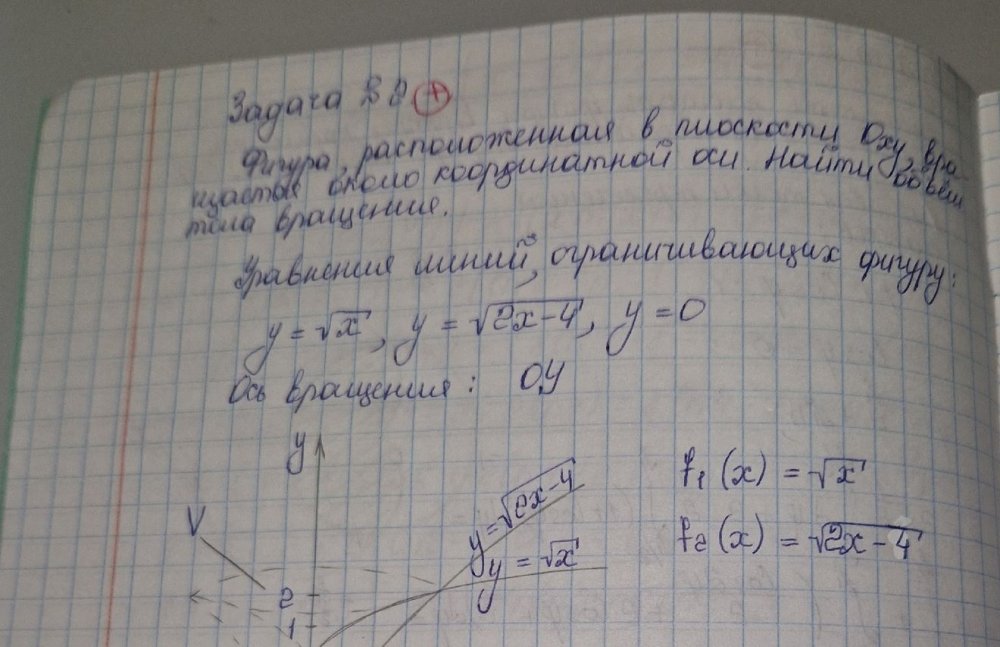 Задача №8 +
Фигура, расположенная в плоскости Oxy, вра-
щается около координатной оси. Найти объём
тела вращения.
Уравнения линий, ограничивающих фигуру:
y = √x, y = √2x-4, y = 0
Ось вращения: OY
y
f₁(x) = √x
y = √2x-4
V
f₂(x) = √2x-4
y = √x
2
1